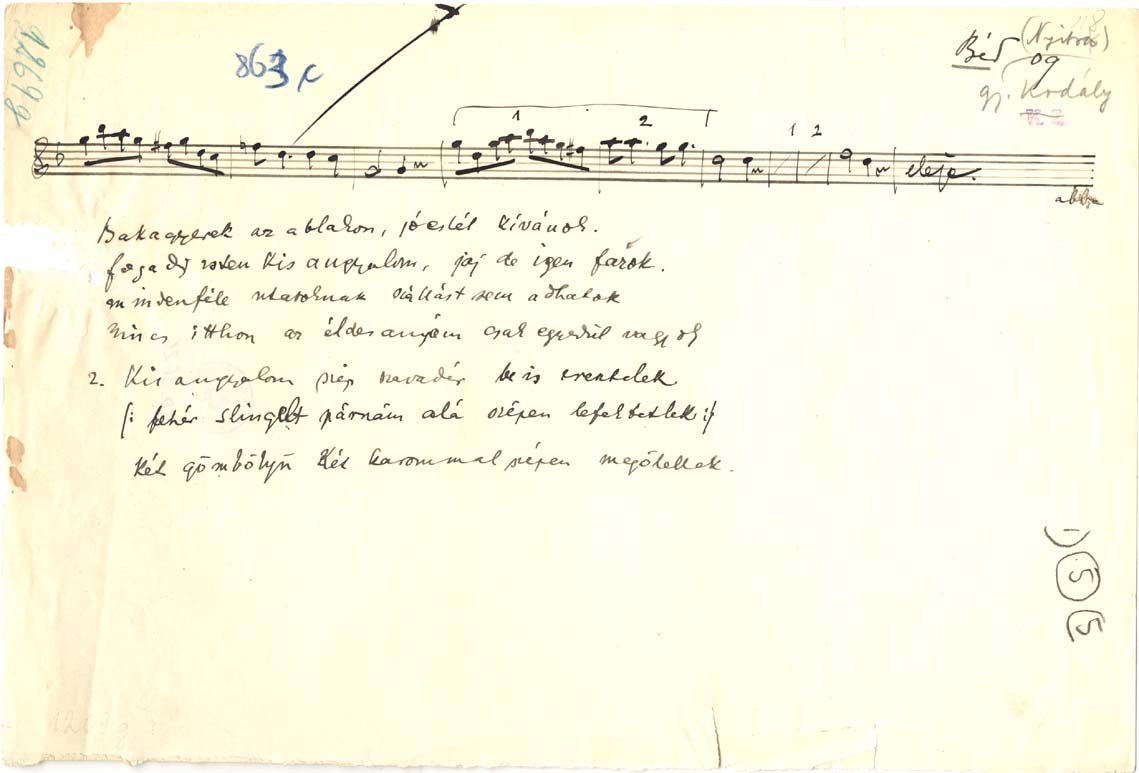 1269g
863 c
Béd (Nyitra)
09
gj. Kodály
1 2
1 2
eleje.
Bakagyerek az ablakon, jóestét kívánok.
fogadj isten kis angyalom, jaj de igen fázok.
mindenféle utasoknak szállást sem adhatok
nincs itthon az éldesanyám csak egyedül vagyok
2. Kis angyalom szép szavadér be is eresztelek
/: fehér slinglt párnám alá szépen lefektetlek :/
két gömbölyű két karommal szépen megölellek.
1) 5
5